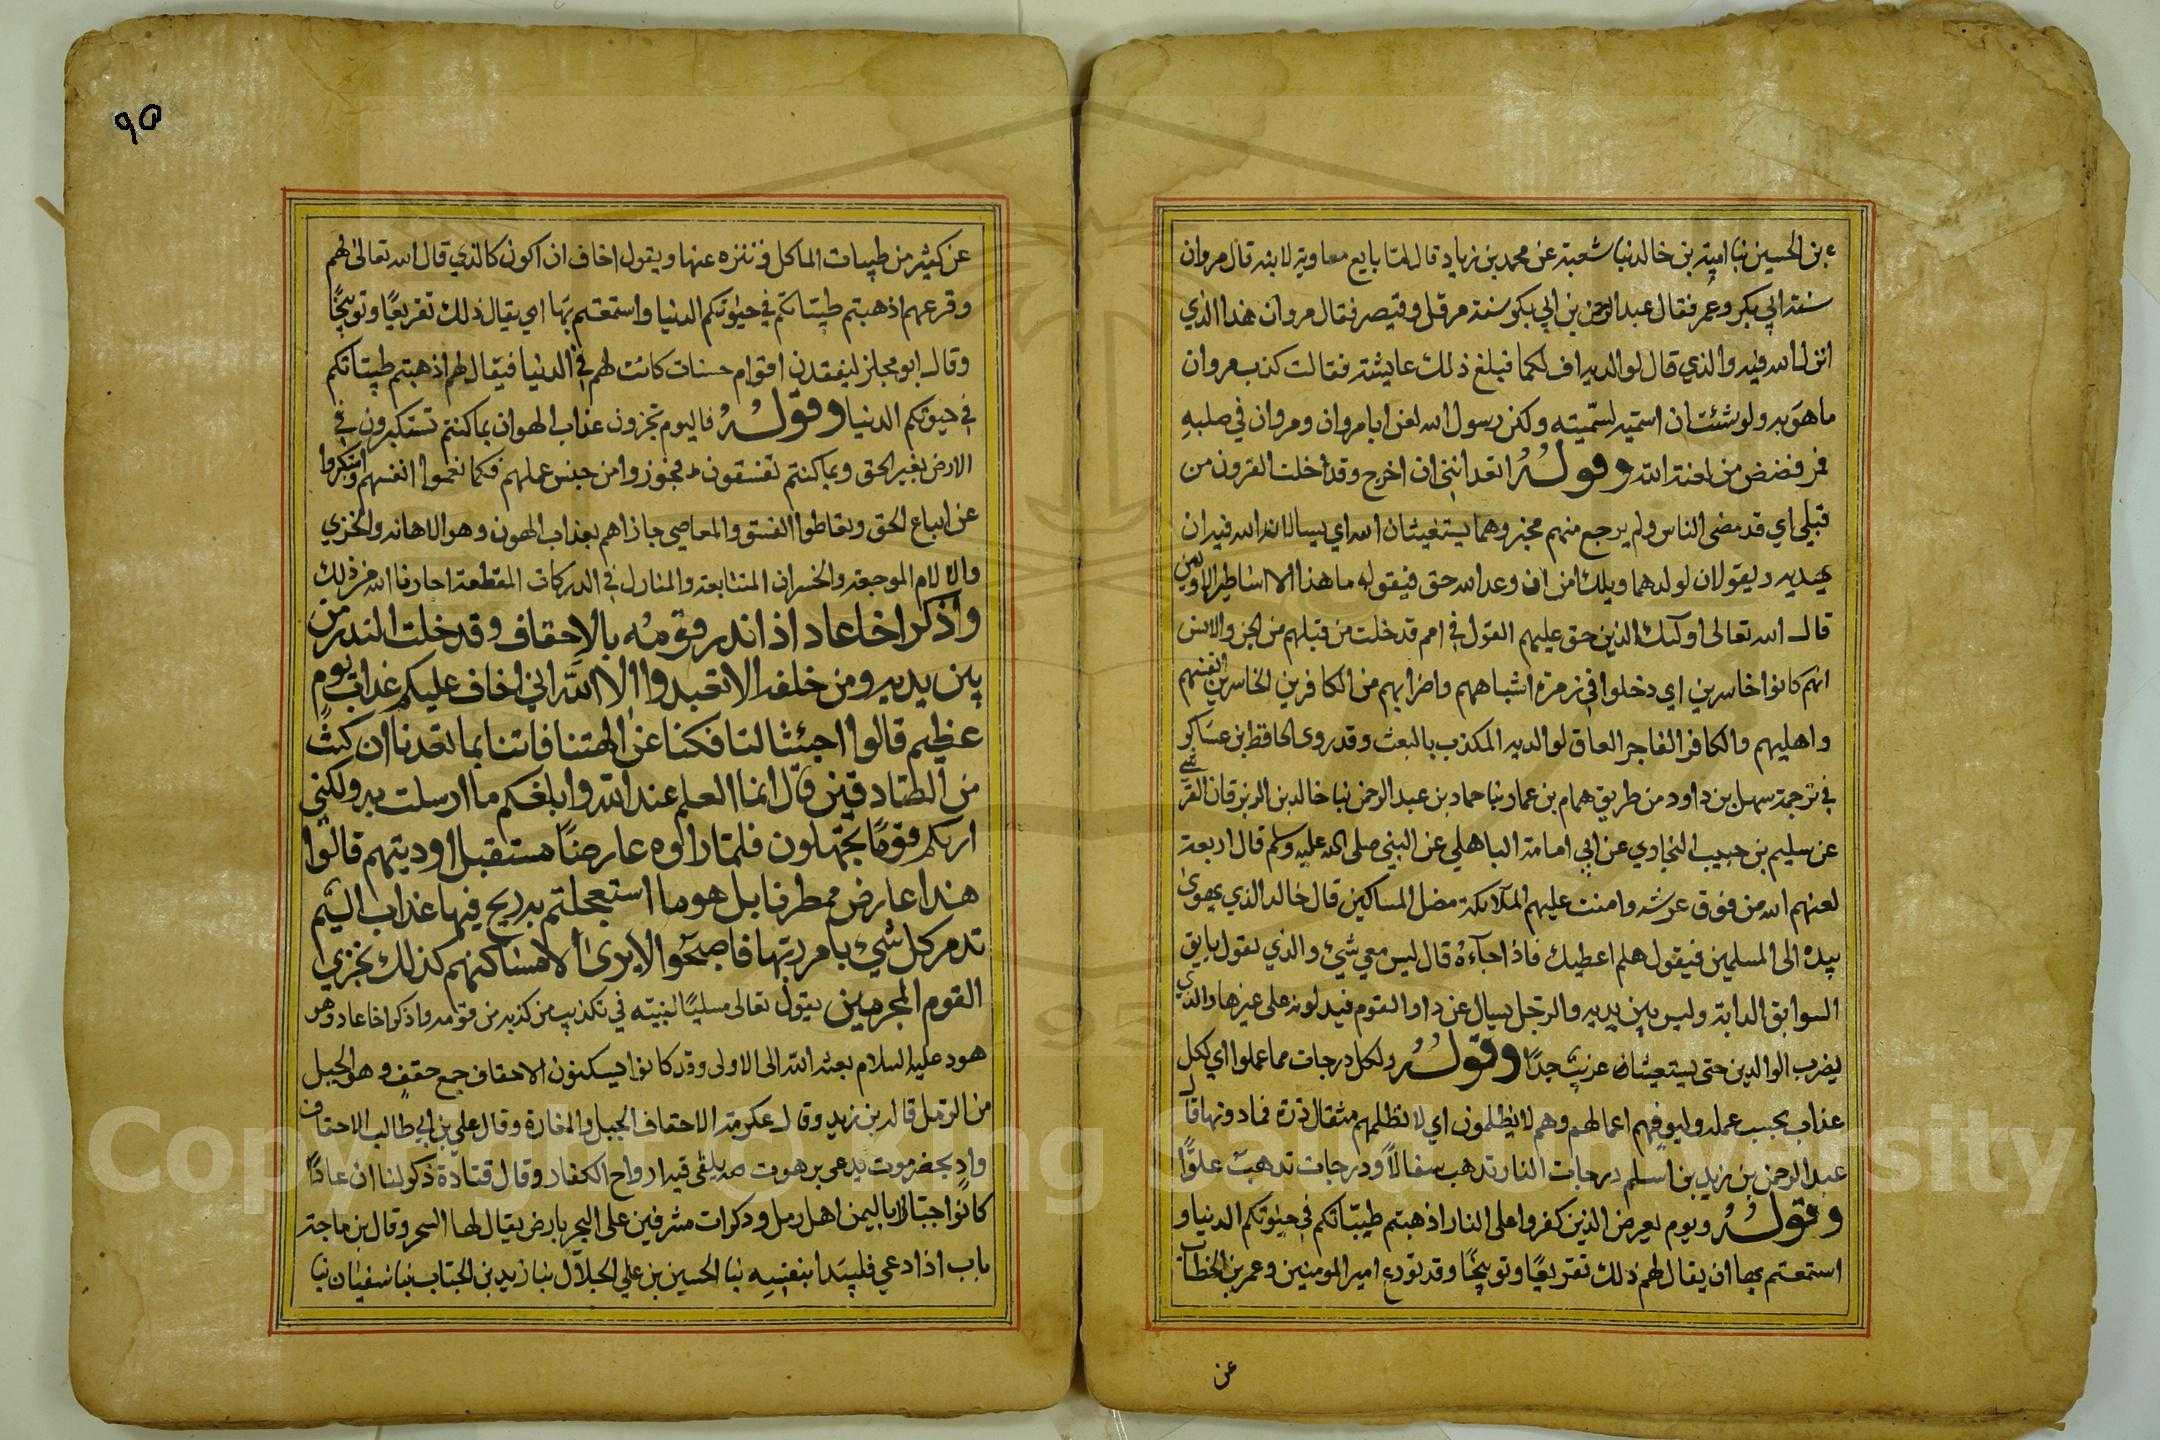 بن الحسين نبا امية بن خالد نبا شعبة عن محمد بن زياد قال لما بايع معاوية لابنه قال مروان
سنة ابي بكر وعمر فقال عبدالرحمن بن ابي بكر سنة هرقل وقيصر فقال مروان هذا الذي
انزل الله فيه والذي قال لوالديه اف لكما فبلغ ذلك عايشة فقالت كذب مروان
ما هو به ولو شئت ان اسميه لسميته ولكن رسول الله لعن ابا مروان ومروان في صلبه
فمروان فضض من لعنة الله وقوله اتعدانني ان اخرج وقد خلت القرون من
قبلي اي قد مضى الناس ولم يرجع منهم مخبر وهما يستغيثان الله اي يسالان الله فيه ان
يهديه ويقولان لولدهما ويلك امن ان وعد الله حق فيقول ما هذا الا اساطير الاولين
قال الله تعالى اولئك الذين حق عليهم القول في امم قد خلت من قبلهم من الجن والانس
انهم كانوا خاسرين اي دخلوا في زمرة اشباههم واضرابهم من الكافرين الخاسرين انفسهم
واهليهم والكافر الفاجر العاق لوالديه المكذب بالبعث وقد روى الحافظ ابن عساكر
في ترجمة سهل بن داود من طريق همام بن عمار نبا حماد بن عبد الرحمن نبا خالد بن الزبرقان القرشي
عن سليم بن حبيب عن ابي امامة الباهلي عن النبي صلى الله عليه وسلم قال اربعة
لعنهم الله من فوق عرشه وامنت عليهم الملائكة مضل المساكين قال خالد الذي يهوى
بيده الى المسلمين فيقول هلم اعطيك فاذا جآءه قال ليس معي شئ والذي يقول
السوابق الدابة وليس بين يديه والرجل يسال عن دار القوم فيدلونه على غيرها والذي
يضرب الوالدين حتى يستغيثان غريب جدا وقوله ولكل درجات مما عملوا اي لكل
عذاب بحسب عمله وليوفيهم اعمالهم وهم لا يظلمون اي لا نظلمهم مثقال ذرة فما دونها قال
عبدالرحمن بن زيد بن اسلم درجات النار تذهب سفالا ودرجات تذهب علوا
وقوله ويوم يعرض الذين كفروا على النار اذهبتم طيباتكم في حيوتكم الدنيا و
استمتعتم بها ان يقال لهم ذلك تقريعا وتوبيخا وقد تورع امير المومنين وعمر بن الخطاب
عن
٩٥
عن كثير من طيبات الماكل فتنزه عنها ويقول اخاف ان اكون كالذي قال الله تعالى لهم
وقرعهم اذهبتم طيباتكم في حيوتكم الدنيا واستمتعتم بها اي يقال ذلك تقريعا وتوبيخا
وقال ابو مجلز ليفقدن اقوام حسنات كانت لهم في الدنيا فيقال لهم اذهبتم طيباتكم
في حيوتكم الدنيا وقوله فاليوم تجزون عذاب الهوان بما كنتم تستكبرون في
الارض بغير الحق وبما كنتم تفسقون فجوزوا من جنس عملهم فكما نعموا انفسهم واستكبروا
عن اتباع الحق وتعاطوا الفسق والمعاصي جازاهم بعذاب الهون وهو الاهانه والخزي
والالام الموجعة والخسران المتتابعة والمنازل في الدركات المقطعة اجارنا الله من ذلك
واذكر اخا عاد اذ انذر قومه بالاحقاف وقد خلت النذر من
بين يديه ومن خلفه الا تعبدوا الا الله اني اخاف عليكم عذاب يوم
عظيم قالوا اجئتنا لتافكنا عن الهتنا فاتنا بما تعدنا ان كنت
من الصادقين قال انما العلم عند الله وابلغكم ما ارسلت به ولكني
اريكم قوما تجهلون فلما راوه عارضا مستقبل اوديتهم قالوا
هذا عارض ممطرنا بل هو ما استعجلتم به ريح فيها عذاب اليم
تدمر كل شئ بامر ربها فاصبحوا لا يرى الا مساكنهم كذلك نجزي
القوم المجرمين يقول تعالى مسليا لنبيه في تكذيب من كذبه من قومه واذكر اخا عاد وهو
هود عليه السلام بعثه الله الى الاولى وقد كانوا يسكنون الاحقاف جمع حقف وهو الجبل
من الرمل قاله بن زيد وقال عكرمة الاحقاف الجبل والمغارة وقال علي بن ابي طالب الاحقاف
واد بحضرموت يدعى برهوت يلقى فيه ارواح الكفار وقال قتادة ذكر لنا ان عادا
كانوا باليمن اهل رمل مشرفين على البحر بارض يقال لها السحر وقال بن ماجة
باب اذا دعي فليبدا بنفسه نبا الحسين بن علي الخلال نبا زيد بن الحباب نبا سفيان نبا
Copyright © King Saud University